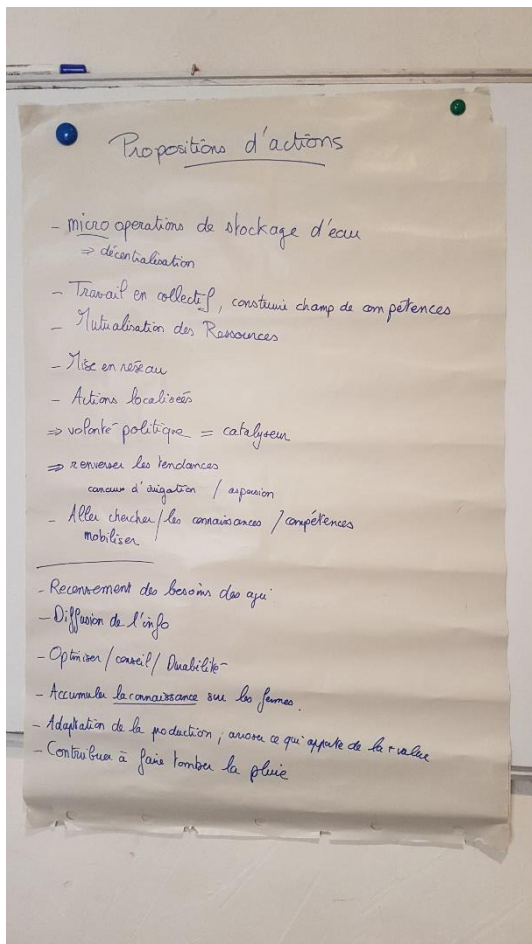 Propositions d'actions
- micro operations de stockage d'eau
⇒ décentralisation
- Travail en collectif, construire champ de compétences
- Mutualisation des Ressources
- Mise en réseau
- Actions localisées
⇒ volonté politique = catalyseur
⇒ renverser les tendances
canaux d'irrigation / aspersion
- Aller chercher / les connaissances / compétences
mobiliser
- Recensement des besoins des agri
- Diffusion de l'info
- Optimiser / conseil / Durabilité
- Accumuler la connaissance sur les fermes.
- Adaptation de la production ; arroser ce qui apporte de la + value
- Contribuer à faire tomber la pluie